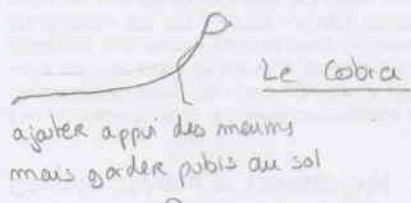 Le Cobra
ajouter appui des mains
mais garder pubis au sol